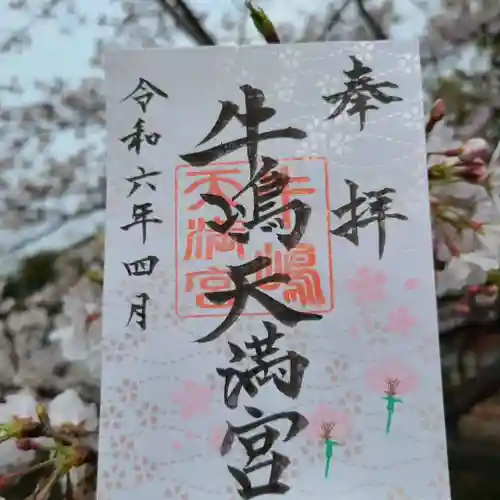 奉拝
牛嶋天満宮
令和六年四月
牛嶋
天満宮